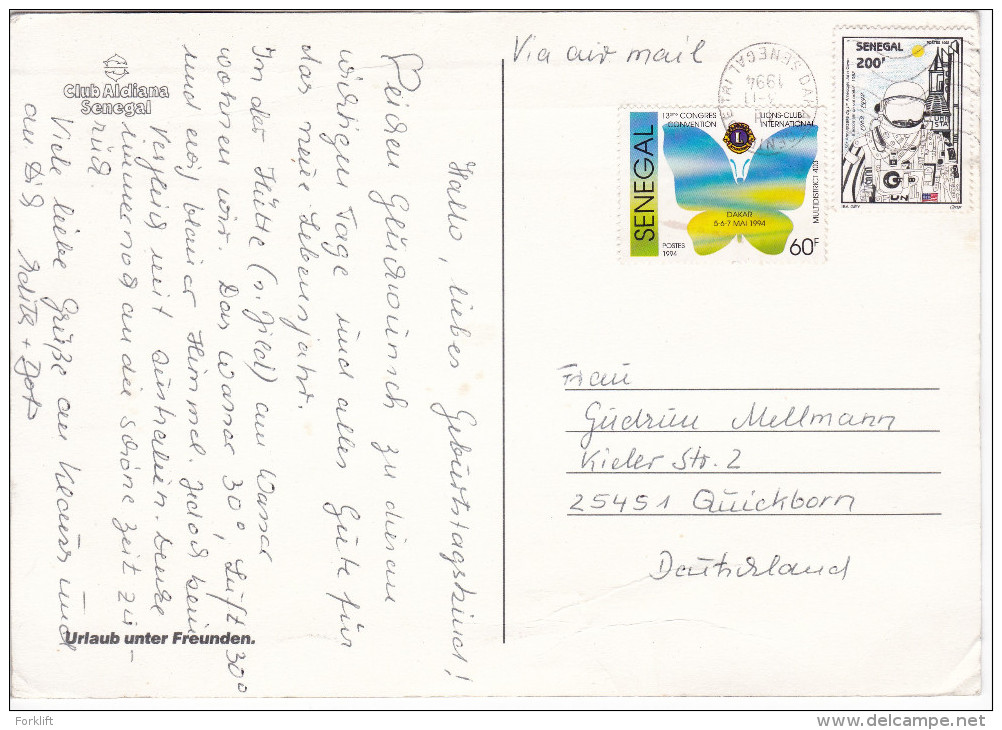 Club Aldiana
Senegal
Hallo, liebes Geburtstagskind!
Reichen Glückwunsch zu diesem
wichtigen Tage und alles Gute für
das neue Lebensjahr.
In der Hütte (s. Bild) am Wasser
wohnen wir. Das Wasser 30°, Luft 30°
und ewig blauer Himmel. Jedoch kein
Vergleich mit Australien. Denke
immer noch an die schöne Zeit zu-
rück
Viele liebe Grüße an Klaus und
an Dich
Urlaub unter Freunden.
Via air mail
SENEGAL
1994
SENEGAL
200F
13EME CONGRES
CONVENTION
LIONS-CLUB
INTERNATIONAL
MULTIDISTRICT 403
SENEGAL
DAKAR
5-6-7 MAI 1994
POSTES
1994
60F
Frau
Gudrun Mellmann
Kieler Str. 2
25451 Quickborn
Deutschland
Forklift
delcampe.net